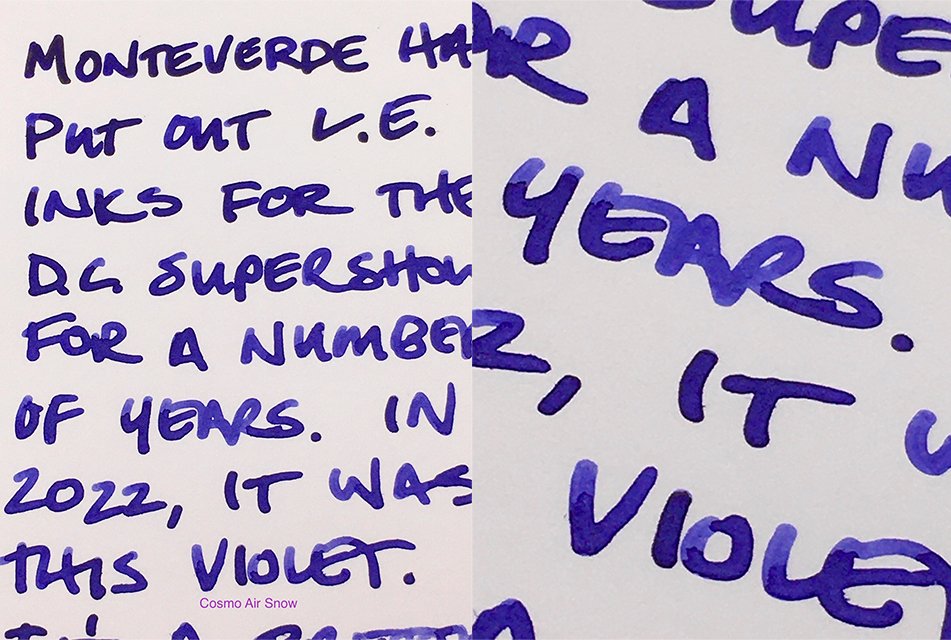 MONTEVERDE HA
PUT OUT L.E.
INKS FOR THE
D.C. SUPERSHOW
FOR A NUMBER
OF YEARS. IN
2022, IT WAS
THIS VIOLET.
Cosmo Air Snow
UPE
R A NU
YEARS.
2, IT
VIOLE